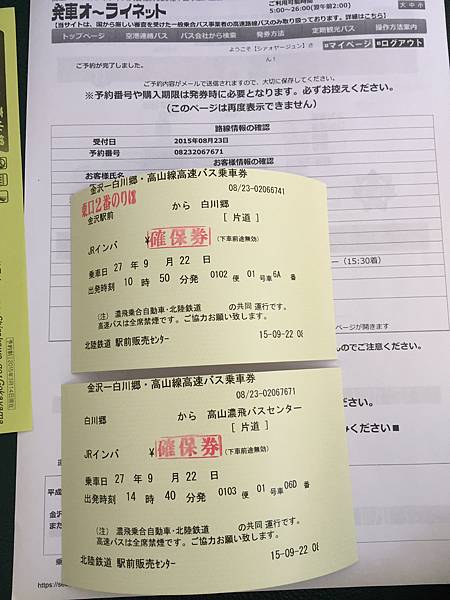 発車オ～ライネット
ご利用可能時間
5:00～26:00(翌午前2:00)
大 中 小
【当サイトは、国から厳しい審査を受けた一般乗合バス事業者の高速路線バスのみ取り扱っております。詳細はこちら】
トップページ 空港連絡バス バス会社から検索 発券方法 定期観光バス 操作方法案内
ようこそ【シアオヤージュン】さん！
マイページ ログアウト
ご予約が完了しました。
ご予約内容がメールで送信されますので、大切に保存してください。
※予約番号や購入期限は発券時に必要となります。必ずお控えください。
（このページは再度表示できません）
路線情報の確認
受付日 2015年08月23日
予約番号 08232067671
お客様情報の確認
お客様氏名
金沢ー白川郷・高山線高速バス乗車券
08/23-02066741
乗口2番のりば
金沢駅前 から 白川郷
［ 片道 ］
JRインバ ￥ 確保券 （下車前途無効）
乗車日 27 年 9 月 22 日
出発時刻 10 時 50 分発 0102 便 01 号車 6A 番
（注） 濃飛乗合自動車・北陸鉄道 の共同 運行です。
高速バスは全席禁煙です。ご協力お願い致します。
北陸鉄道 駅前販売センター 15-09-22 08
ー（15:30着）
ページが開きます
んのでご注意ください。
金沢ー白川郷・高山線高速バス乗車券
08/23-02067671
白川郷 から 高山濃飛バスセンター
［ 片道 ］
JRインバ ￥ 確保券 （下車前途無効）
乗車日 27 年 9 月 22 日
出発時刻 14 時 40 分発 0103 便 01 号車 06D 番
（注） 濃飛乗合自動車・北陸鉄道 の共同 運行です。
高速バスは全席禁煙です。ご協力お願い致します。
北陸鉄道 駅前販売センター 15-09-22 08
ください。
みください■
平成
金沢
また
https://se